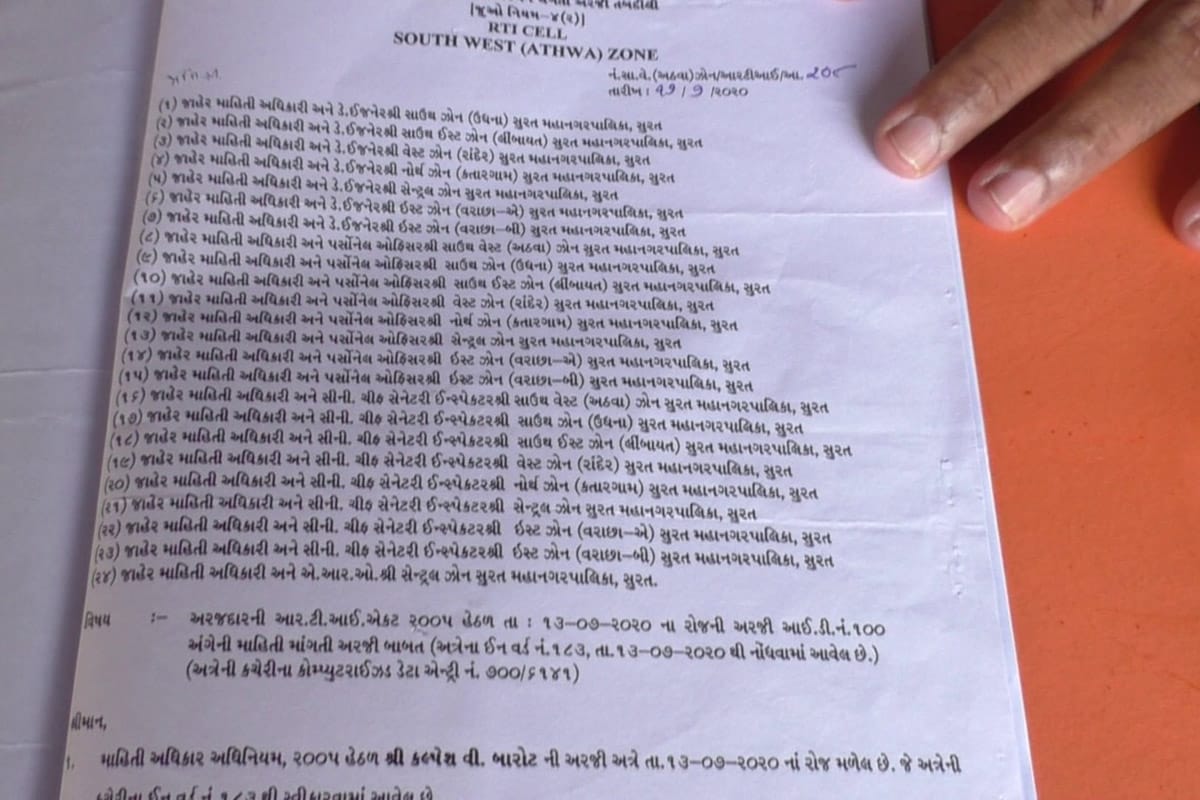 અરજી તબદીલી
[જૂઓ નિયમ–૪(૨)]
RTI CELL
SOUTH WEST (ATHWA) ZONE
નં.સા.વે.(અઠવા)ઝોન/આરટીઆઈ/આ.
પ્રતિ શ્રી.
તારીખ : /૭/૨૦૨૦
(૧) જાહેર માહિતી અધિકારી અને ડે.ઈજનેરશ્રી સાઉથ ઝોન (ઉધના) સુરત મહાનગરપાલિકા, સુરત
(૨) જાહેર માહિતી અધિકારી અને ડે.ઈજનેરશ્રી સાઉથ ઈસ્ટ ઝોન (લીંબાયત) સુરત મહાનગરપાલિકા, સુરત
(૩) જાહેર માહિતી અધિકારી અને ડે.ઈજનેરશ્રી વેસ્ટ ઝોન (રાંદેર) સુરત મહાનગરપાલિકા, સુરત
(૪) જાહેર માહિતી અધિકારી અને ડે.ઈજનેરશ્રી નોર્થ ઝોન (કતારગામ) સુરત મહાનગરપાલિકા, સુરત
(૫) જાહેર માહિતી અધિકારી અને ડે.ઈજનેરશ્રી સેન્ટ્રલ ઝોન સુરત મહાનગરપાલિકા, સુરત
(૬) જાહેર માહિતી અધિકારી અને ડે.ઈજનેરશ્રી ઇસ્ટ ઝોન (વરાછા–એ) સુરત મહાનગરપાલિકા, સુરત
(૭) જાહેર માહિતી અધિકારી અને ડે.ઈજનેરશ્રી ઇસ્ટ ઝોન (વરાછા–બી) સુરત મહાનગરપાલિકા, સુરત
(૮) જાહેર માહિતી અધિકારી અને પર્સોનેલ ઓફિસરશ્રી સાઉથ વેસ્ટ (અઠવા) ઝોન સુરત મહાનગરપાલિકા, સુરત
(૯) જાહેર માહિતી અધિકારી અને પર્સોનેલ ઓફિસરશ્રી સાઉથ ઝોન (ઉધના) સુરત મહાનગરપાલિકા, સુરત
(૧૦) જાહેર માહિતી અધિકારી અને પર્સોનેલ ઓફિસરશ્રી સાઉથ ઈસ્ટ ઝોન (લીંબાયત) સુરત મહાનગરપાલિકા, સુરત
(૧૧) જાહેર માહિતી અધિકારી અને પર્સોનેલ ઓફિસરશ્રી વેસ્ટ ઝોન (રાંદેર) સુરત મહાનગરપાલિકા, સુરત
(૧૨) જાહેર માહિતી અધિકારી અને પર્સોનેલ ઓફિસરશ્રી નોર્થ ઝોન (કતારગામ) સુરત મહાનગરપાલિકા, સુરત
(૧૩) જાહેર માહિતી અધિકારી અને પર્સોનેલ ઓફિસરશ્રી સેન્ટ્રલ ઝોન સુરત મહાનગરપાલિકા, સુરત
(૧૪) જાહેર માહિતી અધિકારી અને પર્સોનેલ ઓફિસરશ્રી ઇસ્ટ ઝોન (વરાછા–એ) સુરત મહાનગરપાલિકા, સુરત
(૧૫) જાહેર માહિતી અધિકારી અને પર્સોનેલ ઓફિસરશ્રી ઇસ્ટ ઝોન (વરાછા–બી) સુરત મહાનગરપાલિકા, સુરત
(૧૬) જાહેર માહિતી અધિકારી અને સીની. ચીફ સેનેટરી ઈન્સ્પેકટરશ્રી સાઉથ વેસ્ટ (અઠવા) ઝોન સુરત મહાનગરપાલિકા, સુરત
(૧૭) જાહેર માહિતી અધિકારી અને સીની. ચીફ સેનેટરી ઈન્સ્પેકટરશ્રી સાઉથ ઝોન (ઉધના) સુરત મહાનગરપાલિકા, સુરત
(૧૮) જાહેર માહિતી અધિકારી અને સીની. ચીફ સેનેટરી ઈન્સ્પેકટરશ્રી સાઉથ ઈસ્ટ ઝોન (લીંબાયત) સુરત મહાનગરપાલિકા, સુરત
(૧૯) જાહેર માહિતી અધિકારી અને સીની. ચીફ સેનેટરી ઈન્સ્પેકટરશ્રી વેસ્ટ ઝોન (રાંદેર) સુરત મહાનગરપાલિકા, સુરત
(૨૦) જાહેર માહિતી અધિકારી અને સીની. ચીફ સેનેટરી ઈન્સ્પેકટરશ્રી નોર્થ ઝોન (કતારગામ) સુરત મહાનગરપાલિકા, સુરત
(૨૧) જાહેર માહિતી અધિકારી અને સીની. ચીફ સેનેટરી ઈન્સ્પેકટરશ્રી સેન્ટ્રલ ઝોન સુરત મહાનગરપાલિકા, સુરત
(૨૨) જાહેર માહિતી અધિકારી અને સીની. ચીફ સેનેટરી ઈન્સ્પેકટરશ્રી ઇસ્ટ ઝોન (વરાછા–એ) સુરત મહાનગરપાલિકા, સુરત
(૨૩) જાહેર માહિતી અધિકારી અને સીની. ચીફ સેનેટરી ઈન્સ્પેકટરશ્રી ઇસ્ટ ઝોન (વરાછા–બી) સુરત મહાનગરપાલિકા, સુરત
(૨૪) જાહેર માહિતી અધિકારી અને એ.આર.ઓ.શ્રી સેન્ટ્રલ ઝોન સુરત મહાનગરપાલિકા, સુરત.
વિષય :– અરજદારની આર.ટી.આઈ.એકટ ૨૦૦૫ હેઠળ તા : ૧૩–૦૭–૨૦૨૦ ના રોજની અરજી આઈ.ડી.નં.૧૦૦
અંગેની માહિતી માંગતી અરજી બાબત (અત્રેના ઈન વર્ડ નં.૧૮૩, તા.૧૩–૦૭–૨૦૨૦ થી નોંધવામાં આવેલ છે.)
(અત્રેની કચેરીના કોમ્પ્યુટરાઈઝડ ડેટા એન્ટ્રી નં. ૭૦૦/૬૧૪૧)
શ્રીમાન,
૧. માહિતી અધિકાર અધિનિયમ, ૨૦૦૫ હેઠળ શ્રી કલ્પેશ વી. બારોટ ની અરજી અત્રે તા.૧૩–૦૭–૨૦૨૦ નાં રોજ મળેલ છે. જે અત્રેની
કચેરીના ઈન વર્ડ નં.૧૮૩ થી સ્વીકારવામાં આવેલ છે